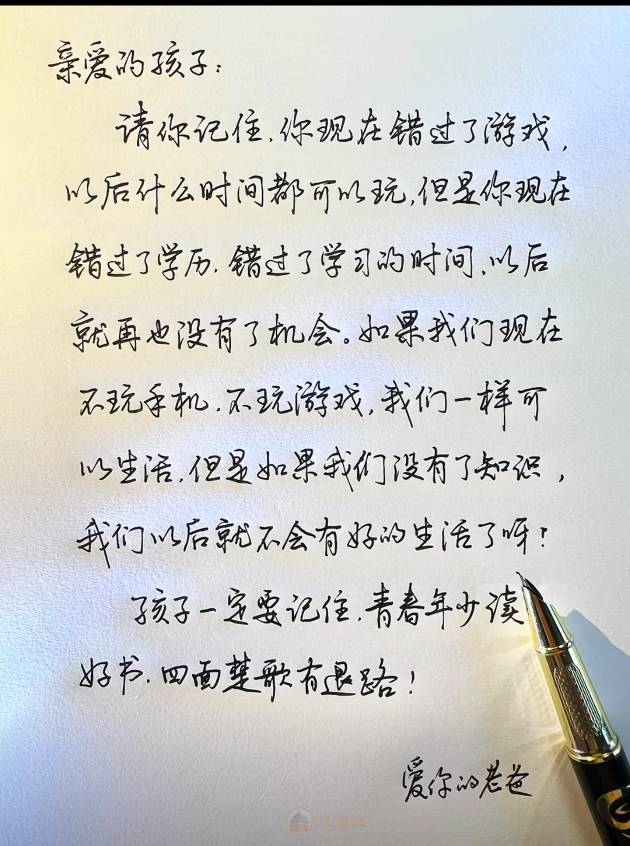 亲爱的孩子：
请你记住，你现在错过了游戏，
以后什么时间都可以玩，但是你现在
错过了学历，错过了学习的时间，以后
就再也没有了机会。如果我们现在
不玩手机，不玩游戏，我们一样可
以生活，但是如果我们没有了知识，
我们以后就不会有好的生活了呀？
孩子一定要记住，青春年少读
好书，四面楚歌有退路！
爱你的老爸